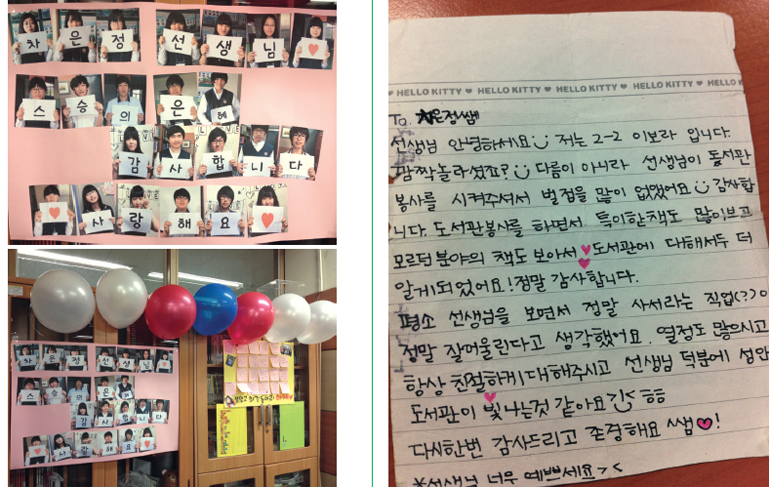 차은정 선생님♥
스승의 은혜
감사합니다
♥사랑해요♥
차은정 선생님♥
스승의 은혜
감사합니다
♥사랑해요♥
♥ HELLO KITTY ♥ HELLO KITTY ♥ HELLO KITTY ♥ HELLO KITTY ♥ HELLO KITTY
To. 차은정쌤
선생님 안녕하세요 저는 2-2 이보라 입니다.
깜짝놀라셨죠? 다름이 아니라 선생님이 도서관
봉사를 시켜주셔서 벌점을 많이 없앴어요 감사합
니다. 도서관봉사를 하면서 특이한책도 많이보고
모르던 분야의 책도 보아서♥도서관에 대해서두 더
알게되었어요! 정말 감사합니다.
평소 선생님을 보면서 정말 사서라는 직업(?)이
정말 잘어울린다고 생각했어요. 열정도 많으시고
항상 친절하게대해주시고 선생님 덕분에 성안
도서관이 빛나는것 같아요 ㅎㅎ
다시한번 감사드리고 존경해요 쌤♥!
*선생님 너무 예쁘세요><